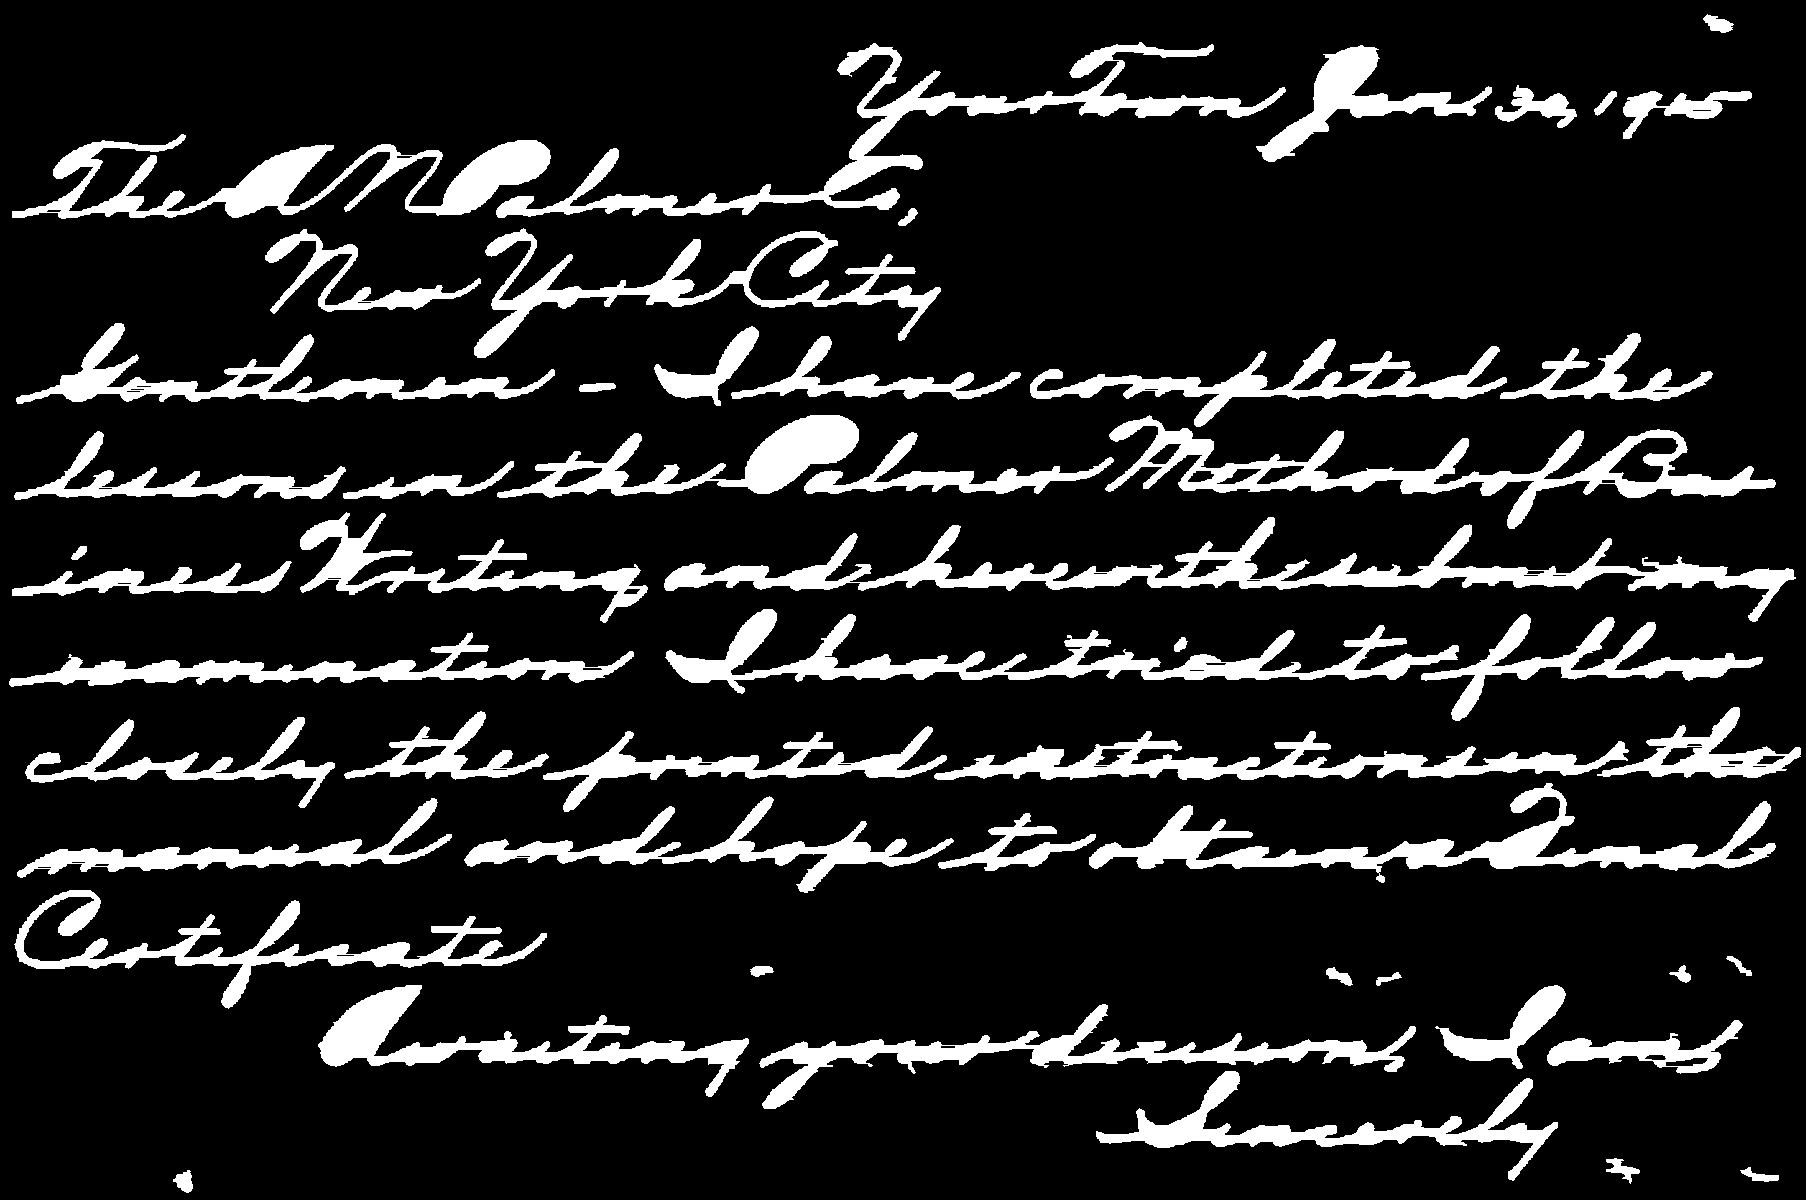 Your Town Jan. 30, 1915
The A N Palmer Co,
New York City
Gentlemen - I have completed the
lessons in the Palmer Method of Bus
iness Writing, and herewith submit my
examination I have tried to follow
closely the printed instructions in the
manual and hope to obtain a Final
Certificate
Awaiting your decision, I am,
Sincerely